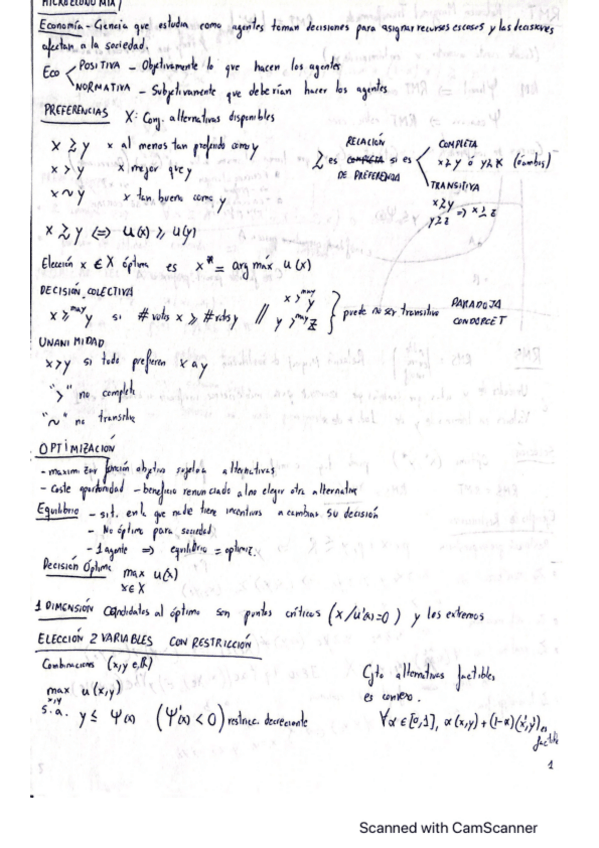 MICROECONOMÍA
Economía - Ciencia que estudia como agentes toman decisiones para asignar recursos escasos y las decisiones
afectan a la sociedad.
Eco
POSITIVA - Objetivamente lo que hacen los agentes
NORMATIVA - Subjetivamente que deberían hacer los agentes
PREFERENCIAS X: Conj. alternativas disponibles
x ≿ y x al menos tan preferido como y
x > y x mejor que y
x ~ y x tan bueno como y
≿ es RELACIÓN DE PREFERENCIA si es
COMPLETA
x≿y ó y≿x (ó ambas)
TRANSITIVA
x≿y
y≿z => x≿z
x ≿ y <=> u(x) ≥ u(y)
Elección x ∈ X óptima es x* = arg máx u(x)
DECISIÓN COLECTIVA
x ≥may y si #votos x ≥ #votos y // x >may y
y >may z } puede no ser transitivo PARADOJA CONDORCET
UNANIMIDAD
x>y si todo prefieren x a y
">" no completa
"~" no transitiva
OPTIMIZACIÓN
- maximizar función objetivo sujeto a alternativas
- Coste oportunidad - beneficio renunciado al no elegir otra alternativa
Equilibrio - sit. en la que nadie tiene incentivos a cambiar su decisión
- No óptimo para sociedad
- 1 agente => equilibrio = optimiz.
Decisión Óptima máx u(x)
x∈X
1 DIMENSIÓN Candidatos al óptimo son puntos críticos (x/u'(x)=0) y los extremos
ELECCIÓN 2 VARIABLES CON RESTRICCIÓN
Combinaciones (x,y ∈ R)
max u(x,y)
x,y
s.a. y ≤ Ψ(x) (Ψ'(x) < 0) restricc. decreciente
Cjto alternativas factibles
es convexo.
∀α ∈ [0,1], α(x,y) + (1-α)(x',y') es
factible
1
Scanned with CamScanner